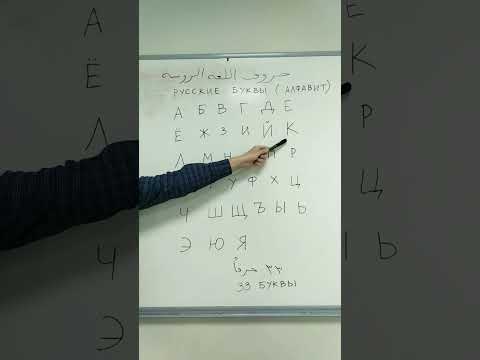 حروف اللغه الروسيه
РУССКИЕ БУКВЫ (АЛФАВИТ)
А Б В Г Д Е
Ё Ж З И Й К
Л М Н П Р
У Ф Х Ц
Ч Ш Щ Ъ Ы Ь
Э Ю Я
٣٣ حرفاً
33 БУКВЫ